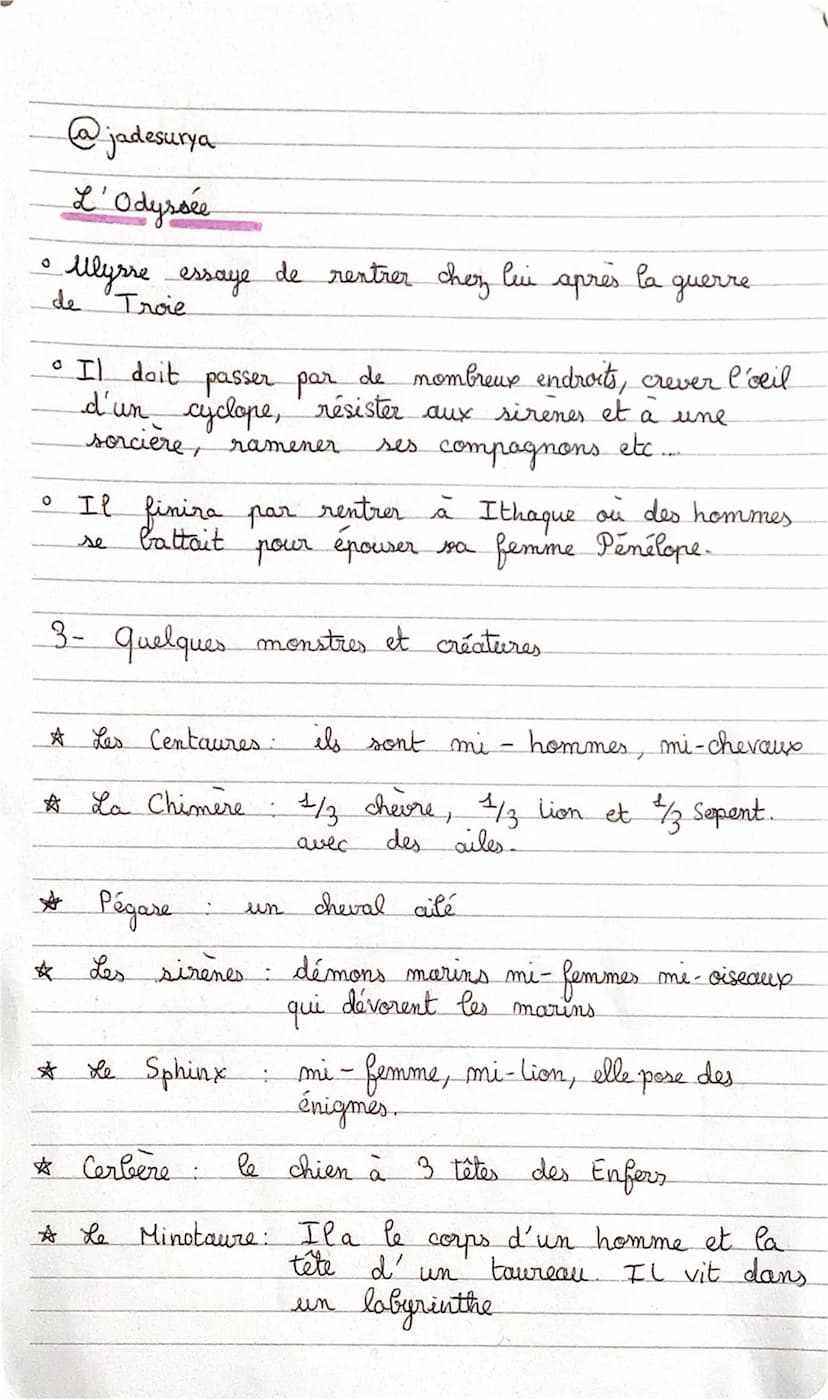 @jadesurya
L'Odyssée
° Ulysse essaye de rentrer chez lui après la guerre
de Troie
° Il doit passer par de nombreux endroits, crever l'oeil
d'un cyclope, résister aux sirènes et à une
sorcière, ramener ses compagnons etc...
° Il finira par rentrer à Ithaque où des hommes
se battait pour épouser sa femme Pénélope.
3- Quelques monstres et créatures
☆ Les Centaures : ils sont mi - hommes, mi-chevaux
☆ La Chimère : 1/3 chèvre, 1/3 lion et 1/3 Sepent.
avec des ailes.
☆ Pégase : un cheval ailé
☆ Les sirènes : démons marins mi-femmes mi-oiseaux
qui dévorent les marins
☆ Le Sphinx : mi-femme, mi-lion, elle pose des
énigmes.
☆ Cerbère : le chien à 3 têtes des Enfers
☆ Le Minotaure : Il a le corps d'un homme et la
tête d'un taureau. Il vit dans
un labyrinthe